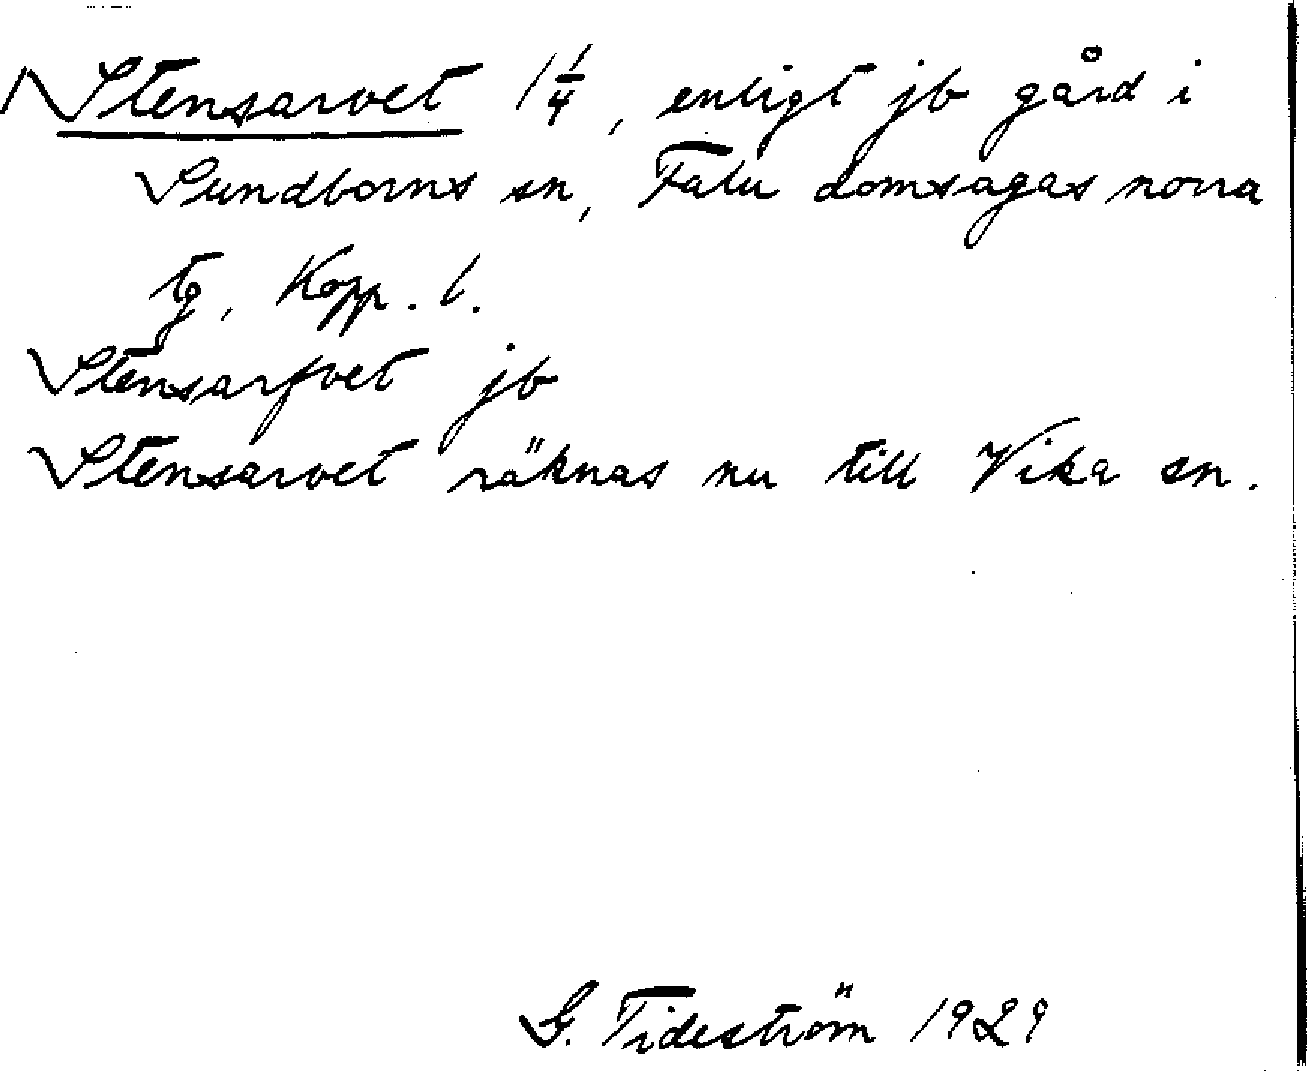 Stensarvet 1 1/4, enligt jb gård i
Sundborns sn, Falu domsagas norra
tg, Kopp. l.
Stensarfvet jb
Stensarvet räknas nu till Vika sn.
G. Tideström 1929